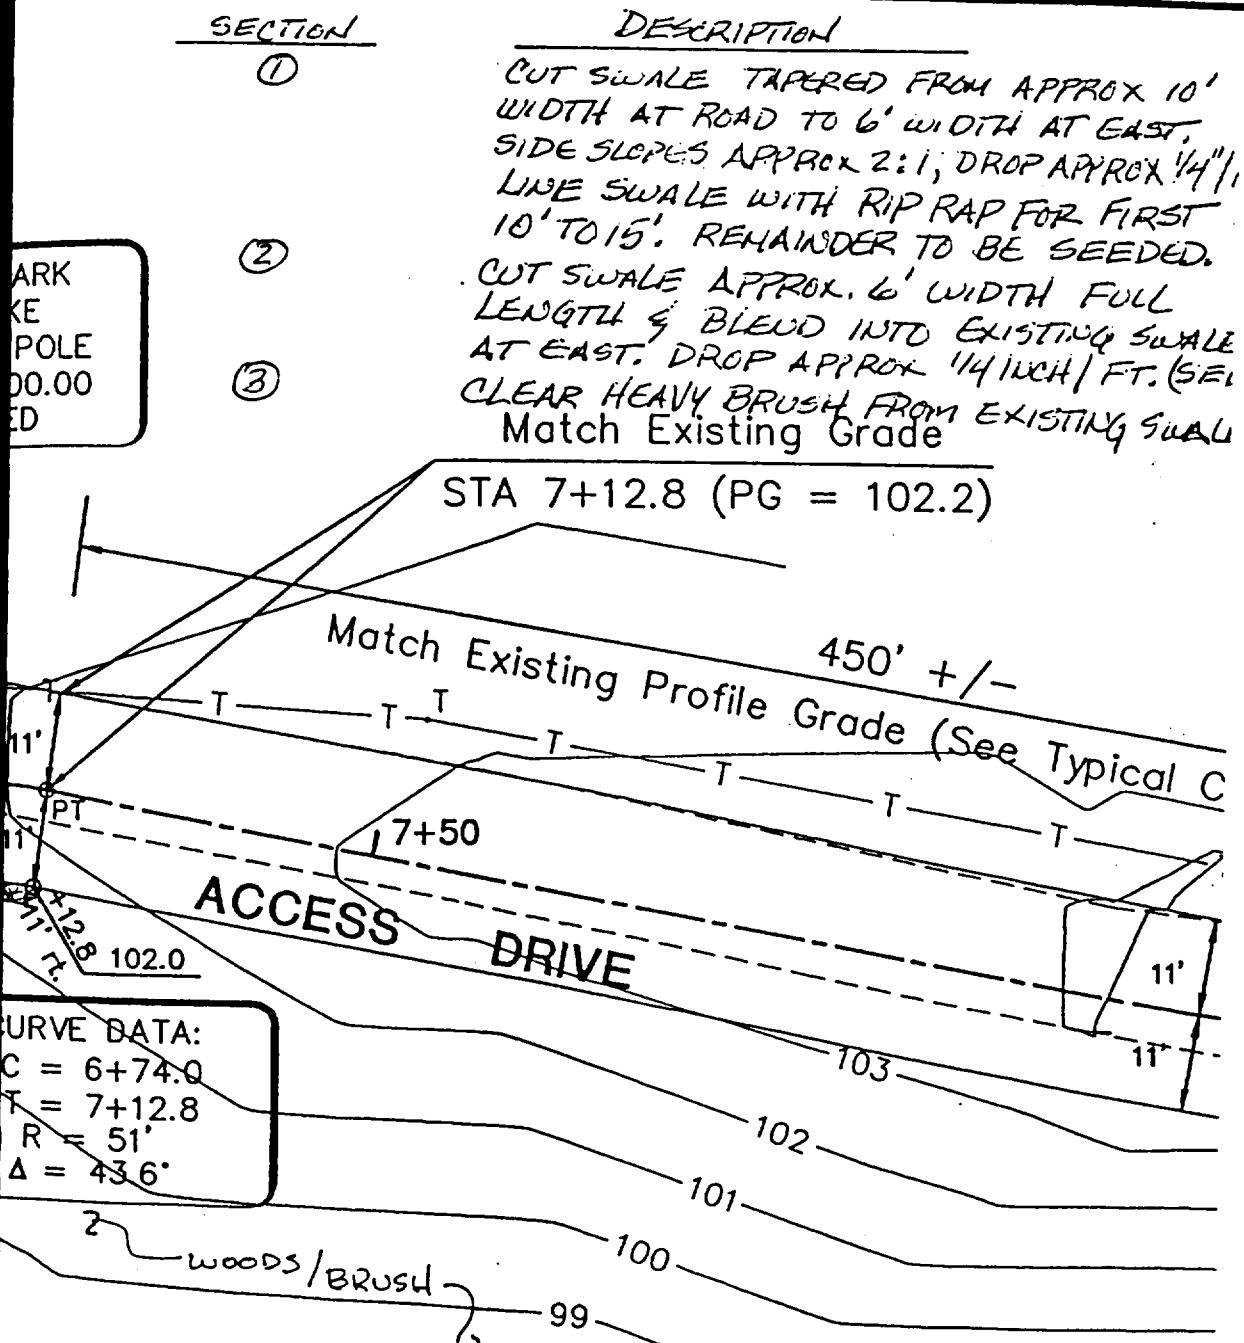 SECTION DESCRIPTION
① CUT SWALE TAPERED FROM APPROX 10'
WIDTH AT ROAD TO 6' WIDTH AT EAST.
SIDE SLOPES APPROX 2:1, DROP APPROX 1/4"/
LINE SWALE WITH RIP RAP FOR FIRST
10' TO 15'. REMAINDER TO BE SEEDED.
② CUT SWALE APPROX. 6' WIDTH FULL
LENGTH & BLEND INTO EXISTING SWALE
AT EAST. DROP APPROX 1/4 INCH / FT.
③ CLEAR HEAVY BRUSH FROM EXISTING
ARK
KE
POLE
00.00
ED
Match Existing Grade
STA 7+12.8 (PG = 102.2)
450' +/-
Match Existing Profile Grade (See Typical C
T T T T T T T T
11'
PT
11'
7+50
ACCESS DRIVE
+12.8
11' rt.
102.0
11'
11'
URVE DATA:
C = 6+74.0
T = 7+12.8
R = 51'
Δ = 43.6°
103
102
101
100
99
2
WOODS/BRUSH